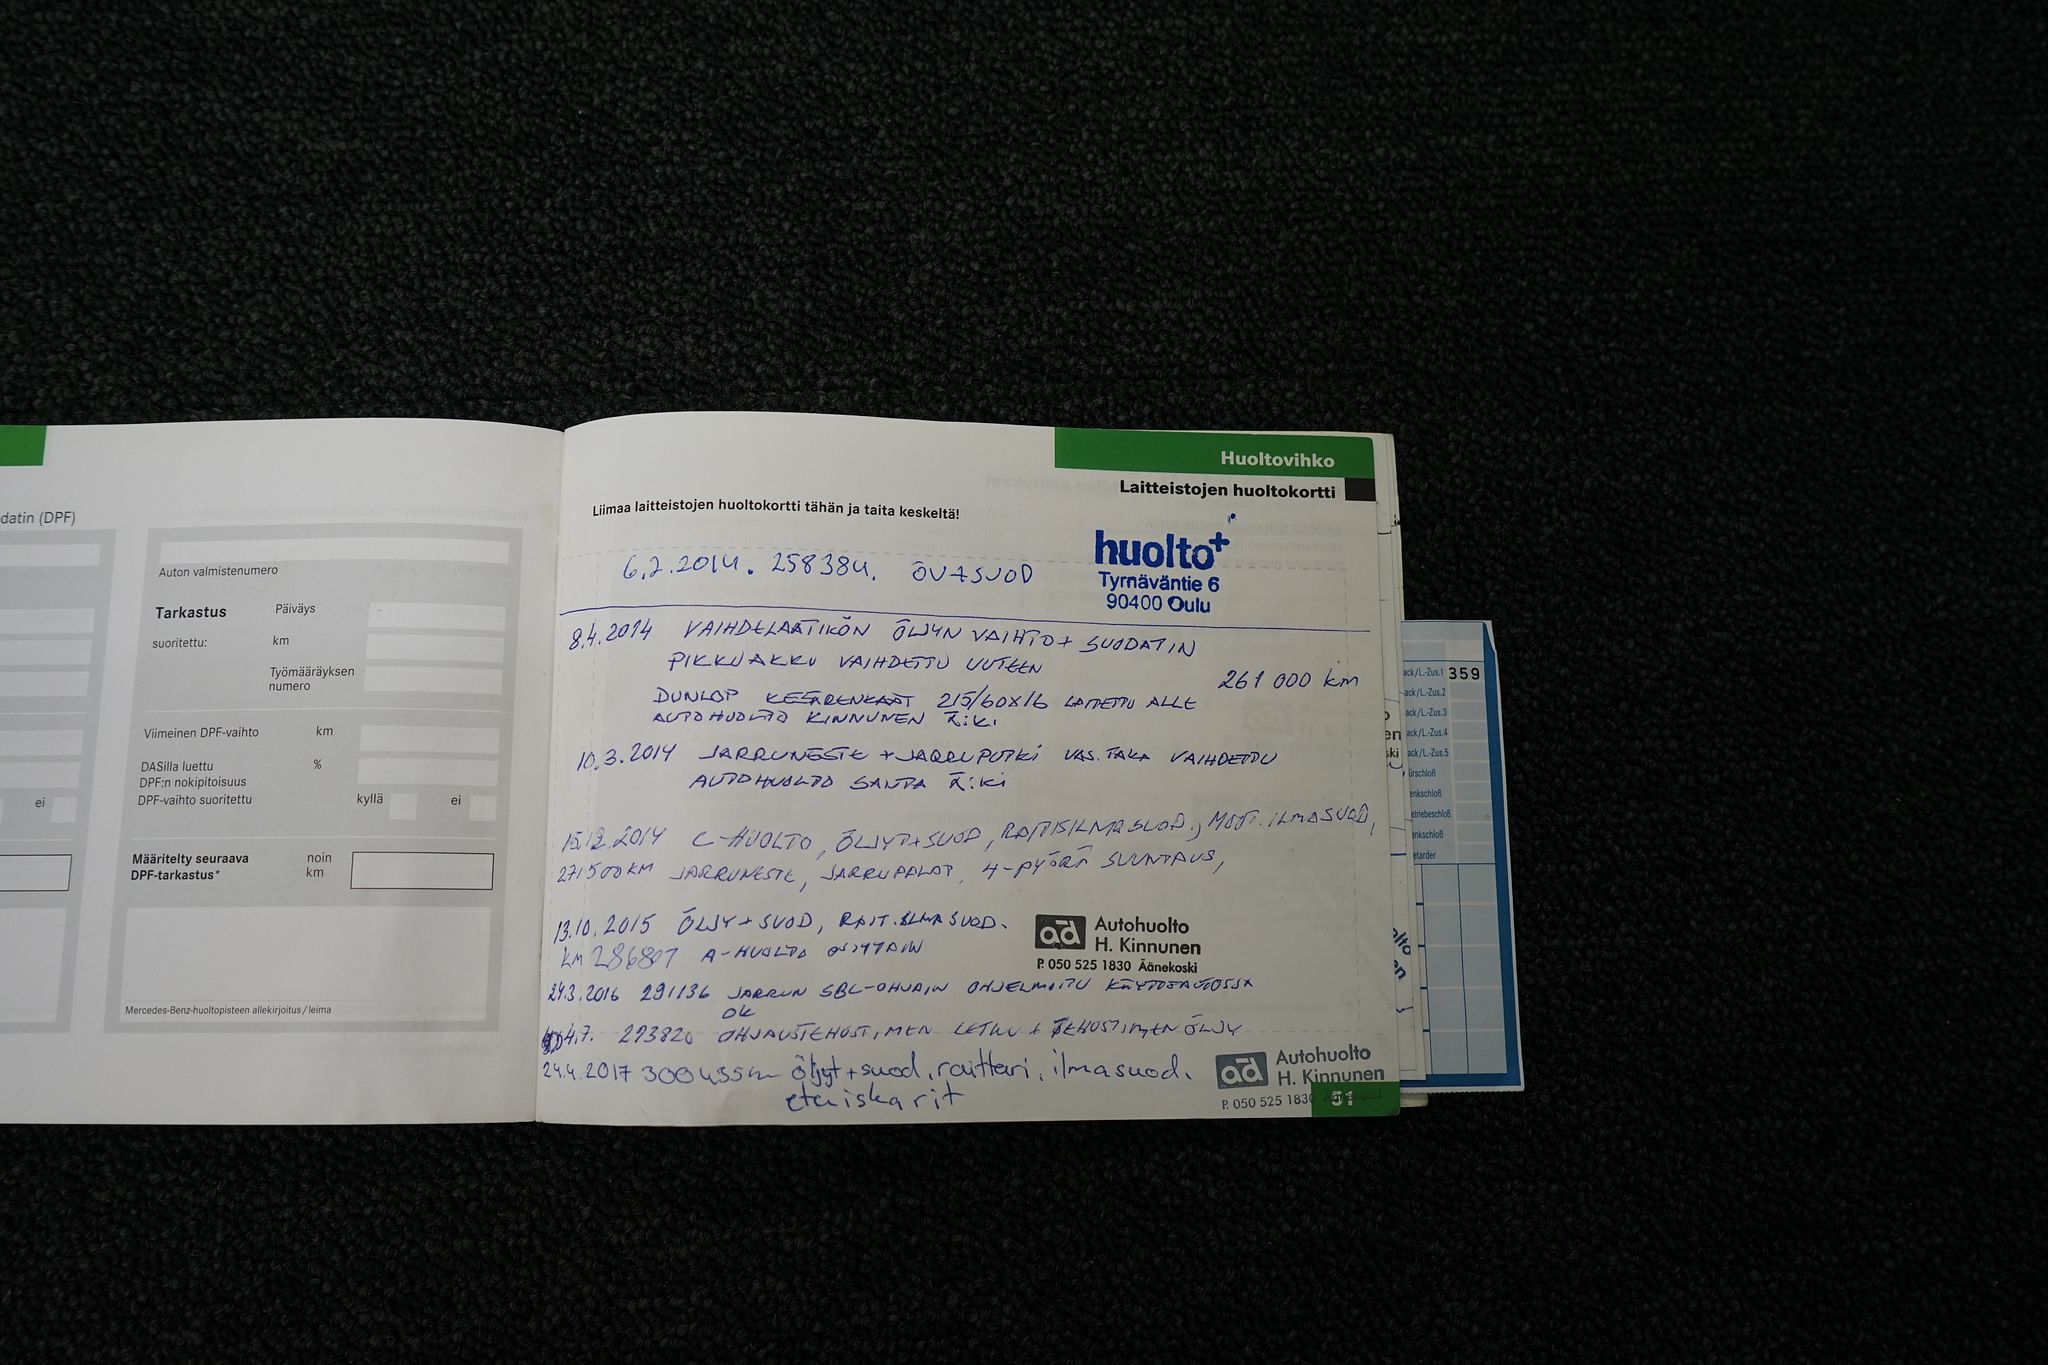 datin (DPF)
ei
Auton valmistenumero
Tarkastus Päiväys
suoritettu: km
Työmääräyksen
numero
Viimeinen DPF-vaihto km
DASilla luettu %
DPF:n nokipitoisuus
DPF-vaihto suoritettu kyllä ei
Määritelty seuraava noin
DPF-tarkastus* km
Mercedes-Benz-huoltopisteen allekirjoitus / leima
Huoltovihko
Laitteistojen huoltokortti
Liimaa laitteistojen huoltokortti tähän ja taita keskeltä!
huolto+
Tyrnäväntie 6
90400 Oulu
6.2.2014. 258384. ÖV+SUOD
8.4.2014 VAIHDELAATIKON ÖLJYN VAIHTO + SUODATIN
PIKKUAKKU VAIHDETTU UUTEEN
261 000 km
DUNLOP KESÄRENKAAT 215/60X16 LAITETTU ALLE
AUTOHUOLTO KINNUNEN Ä:KI
10.3.2014 JARRUNESTE + JARRUPUTKI VAS. TAKA VAIHDETTU
AUTOHUOLTO SANTA Ä:KI
15.12.2014 C-HUOLTO, ÖLJYT+SUOD, RAITISILMASUOD., MOOT. ILMASUOD,
271500KM JARRUNESTE, JARRUPALAT, 4-PYÖRÄ SUUNTAUS,
13.10.2015 ÖLJY + SUOD, RAIT. ILMASUOD.
KM 286807 A-HUOLTO
ad Autohuolto
H. Kinnunen
P. 050 525 1830 Äänekoski
24.3.2016 291136 JARRUN SBC-OHJAIN OHJELMOITU KÄYTTÖAUTOSSA
OK
4.7. 293820 OHJAUSTEHOSTIMEN LETKU + TEHOSTIMEN ÖLJY
24.4.2017 300455km öljyt + suod, raittari, ilmasuod.
etuiskarit
ad Autohuolto
H. Kinnunen
P. 050 525 1830 Äänekoski
51
ack/L.-Zus.1 359
ack/L.-Zus.2
ack/L.-Zus.3
ack/L.-Zus.4
ack/L.-Zus.5
ürschloß
enkschloß
etriebeschloß
ankschloß
etarder